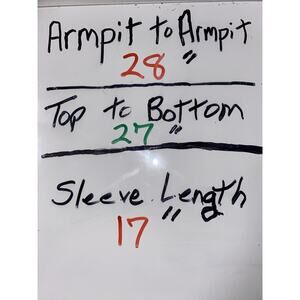 Armpit to Armpit
28"
Top to Bottom
27"
Sleeve Length
17"